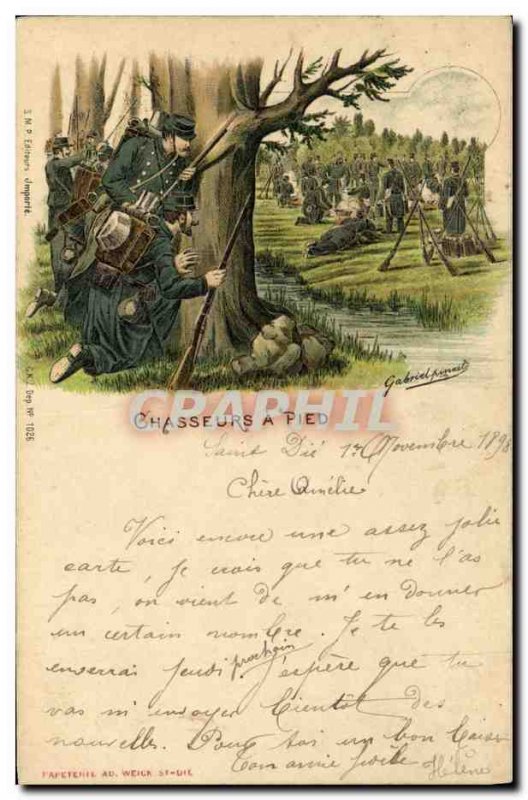 S.M.P. Editeurs
Importé.
C.K. Dep. Nº 1026
Gabriel pinxit
CARTAGRAPHIL
CHASSEURS À PIED
Saint Dié 17 Novembre 189
Chère Amélie
Voici encore une assez jolie
carte, je crois que tu ne l'as
pas, on vient de m'en donner
un certain nombre. Je te les
enverrai jeudi prochain J'espère que tu
vas m'envoyer bientôt des
nouvelles. Pour toi un bon baiser
Ton amie
Hélène
PAPETERIE AD. WEICK ST-DIÉ